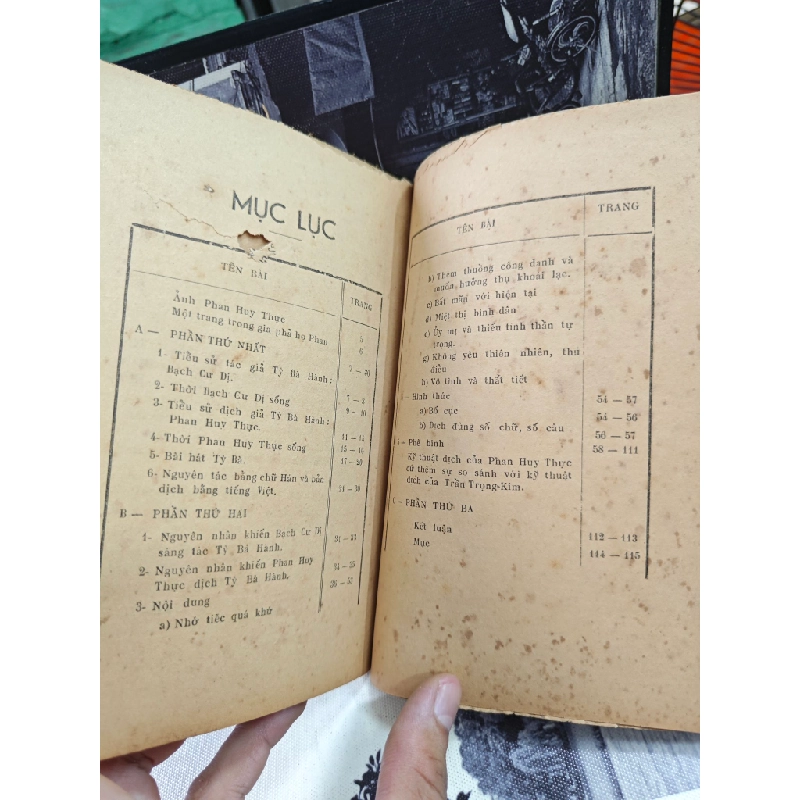 MỤC LỤC
TÊN BÀI
TRANG
Ảnh Phan Huy Thực
5
Một trang trong gia phả họ Phan
6
A — PHẦN THỨ NHẤT
1- Tiểu sử tác giả Tỳ Bà Hành:
Bạch Cư Dị.
2- Thời Bạch Cư Dị sống
3- Tiểu sử dịch giả Tỳ Bà Hành:
Phan Huy Thực.
4- Thời Phan Huy Thực sống
5- Bài hát Tỳ Bà.
17 — 20
6- Nguyên tác bằng chữ Hán và bản
dịch bằng tiếng Việt.
B — PHẦN THỨ HAI
1- Nguyên nhân khiến Bạch Cư Dị
sáng tác Tỳ Bà Hành.
2- Nguyên nhân khiến Phan Huy
Thực dịch Tỳ Bà Hành.
3- Nội dung
a) Nhớ tiếc quá khứ
TÊN BÀI
TRANG
b) Thèm thuồng công danh và
muốn hưởng thụ khoái lạc.
c) Bất mãn với hiện tại
d) Miệt thị bình dân
e) Ủy mị và thiếu tinh thần tự
trọng.
g) Không yêu thiên nhiên, thu
điếu
h) Vô tình và thất tiết
— Hình thức
54 — 57
a) Bố cục
54 — 56
b) Dịch đúng số chữ, số câu
56 — 57
— Phê bình
58 — 111
Kỹ thuật dịch của Phan Huy Thực
cứ theo sự so sánh với kỹ thuật
dịch của Trần Trọng-Kim.
— PHẦN THỨ BA
Kết luận
112 — 113
Mục
114 — 115